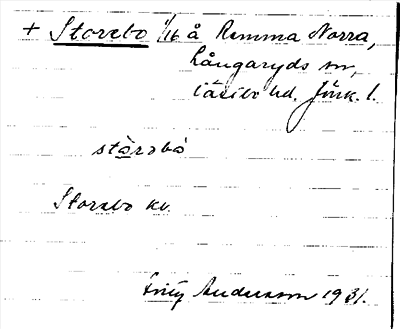 + Storebo 1/16 å Remma Norra,
Långaryds sn,
Västbo hd. Jönk. l.
stòrəbò
Storebo kv.
Andersson 1931.